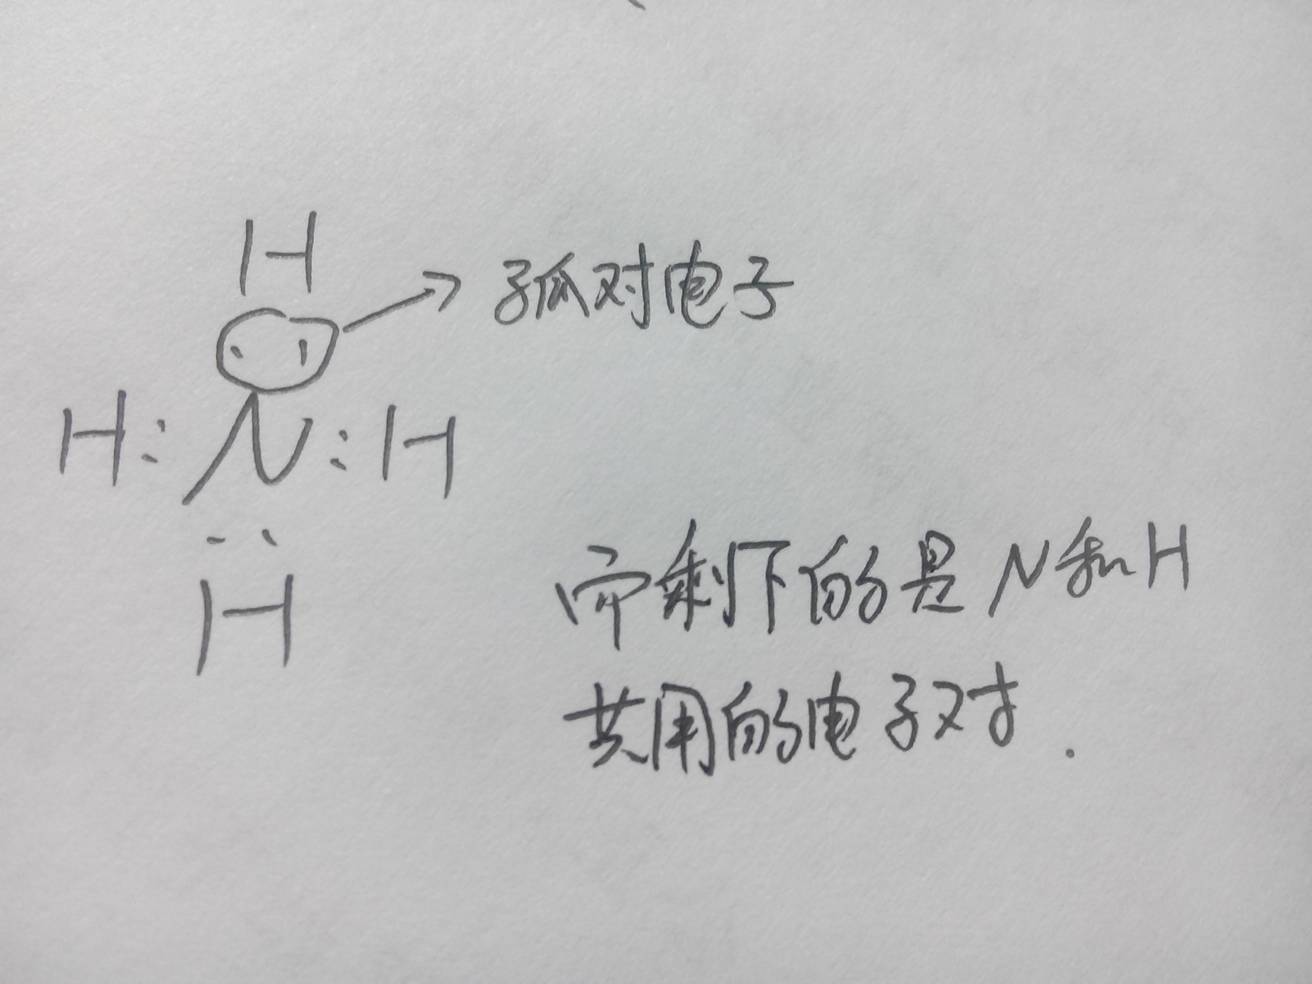 H
孤对电子
H : N : H
··
H
剩下的是N和H
共用的电子对.